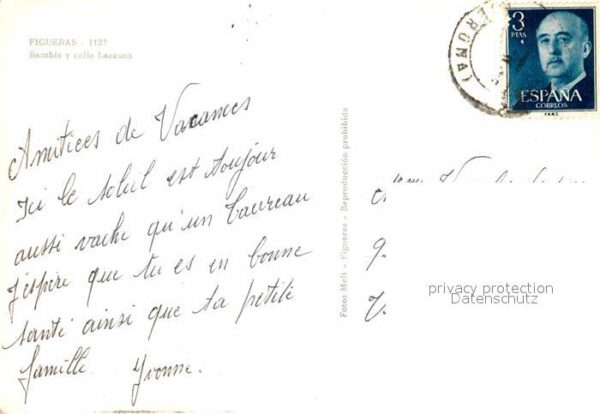 FIGUERAS - 1127
Rambla y calle Lasauca
Amitiées de Vacances
Ici le soleil est toujour
aussi vache qu'un taureau
J'espère que tu es en bonne
santé ainsi que ta petite
famille. Yvonne.
Fotos Meli - Figueras - Reproducción prohibida
GERONA
3
PTAS
ESPAÑA
CORREOS
F.N.M.T.
privacy protection
Datenschutz